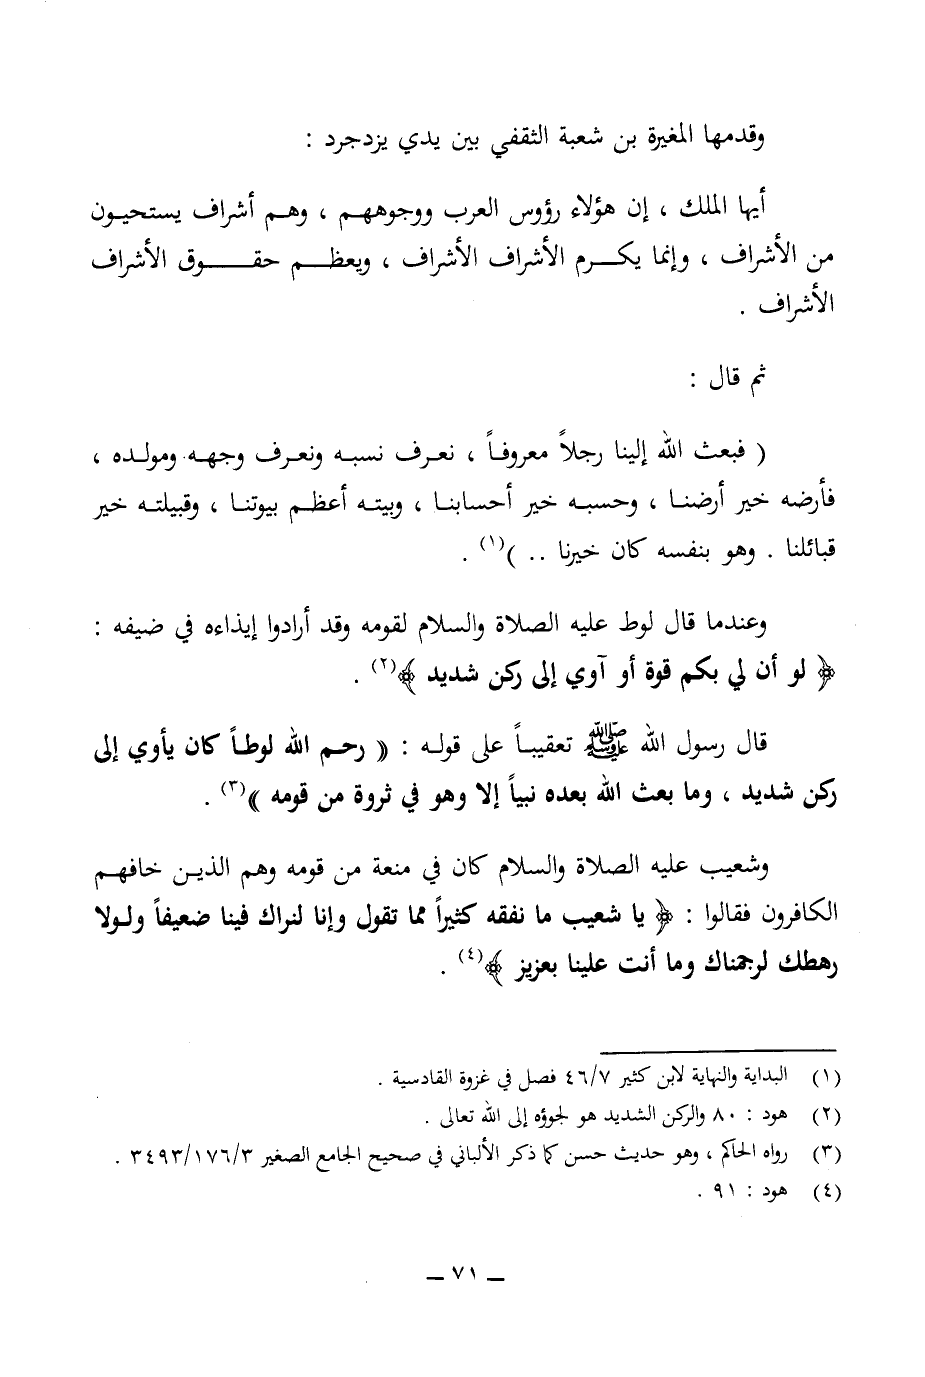 وقدمها المغيرة بن شعبة الثقفي بين يدي يزدجرد :
أيها الملك ، إن هؤلاء رؤوس العرب ووجوههم ، وهم أشراف يستحيون
من الأشراف ، وإنما يكرم الأشراف الأشراف ، ويعظم حقوق الأشراف
الأشراف .
ثم قال :
( فبعث الله إلينا رجلاً معروفاً ، نعرف نسبه ونعرف وجهه ومولده ،
فأرضه خير أرضنا ، وحسبه خير أحسابنا ، وبيته أعظم بيوتنا ، وقبيلته خير
قبائلنا . وهو بنفسه كان خيرنا .. )(١) .
وعندما قال لوط عليه الصلاة والسلام لقومه وقد أرادوا إيذاءه في ضيفه :
﴿ لو أن لي بكم قوة أو آوي إلى ركن شديد ﴾(٢) .
قال رسول الله ﷺ تعقيباً على قوله : « رحم الله لوطاً كان يأوي إلى
ركن شديد ، وما بعث الله بعده نبياً إلا وهو في ثروة من قومه »(٣) .
وشعيب عليه الصلاة والسلام كان في منعة من قومه وهم الذين خافهم
الكافرون فقالوا : ﴿ يا شعيب ما نفقه كثيراً مما تقول وإنا لنراك فينا ضعيفاً ولولا
رهطك لرجمناك وما أنت علينا بعزيز ﴾(٤) .
(١) البداية والنهاية لابن كثير ٤٦/٧ فصل في غزوة القادسية .
(٢) هود : ٨٠ والركن الشديد هو لجوؤه إلى الله تعالى .
(٣) رواه الحاكم ، وهو حديث حسن كما ذكر الألباني في صحيح الجامع الصغير ٣٤٩٣/١٧٦/٣ .
(٤) هود : ٩١ .
— ٧١ —